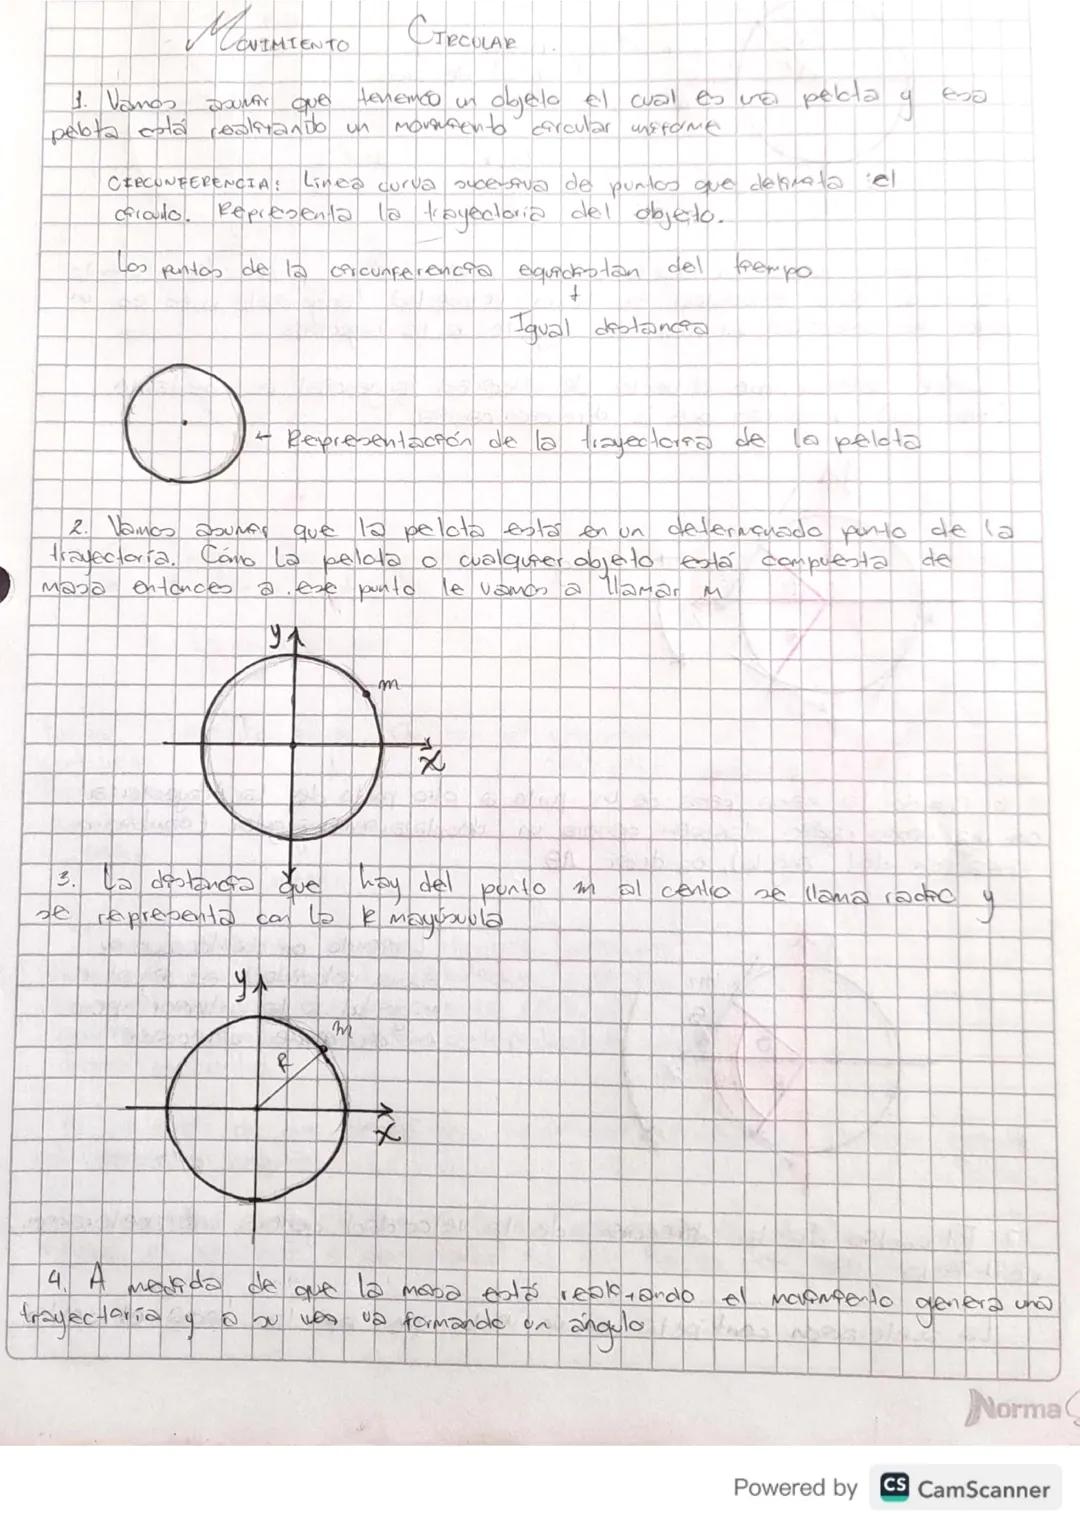 MOVIMIENTO CIRCULAR
1. Vamos asumir que tenemos un objeto el cual es una pelota y esa
pelota está realizando un movimiento circular uniforme
CIRCUNFERENCIA: Línea curva sucesiva de puntos que delimita el
círculo. Representa la trayectoria del objeto.
Los puntos de la circunferencia equidistan del tiempo
Igual distancia
← Representación de la trayectoria de la pelota
2. Vamos asumir que la pelota está en un determinado punto de la
trayectoria. Cómo la pelota o cualquier objeto está compuesta de
masa entonces a ese punto le vamos a llamar m
y
m
x
3. La distancia que hay del punto m al centro se llama radio y
se representa con la R mayúscula
y
m
R
x
4. A medida de que la masa está realizando el movimiento genera una
trayectoria y a su ves va formando un ángulo
Norma
Powered by CS CamScanner